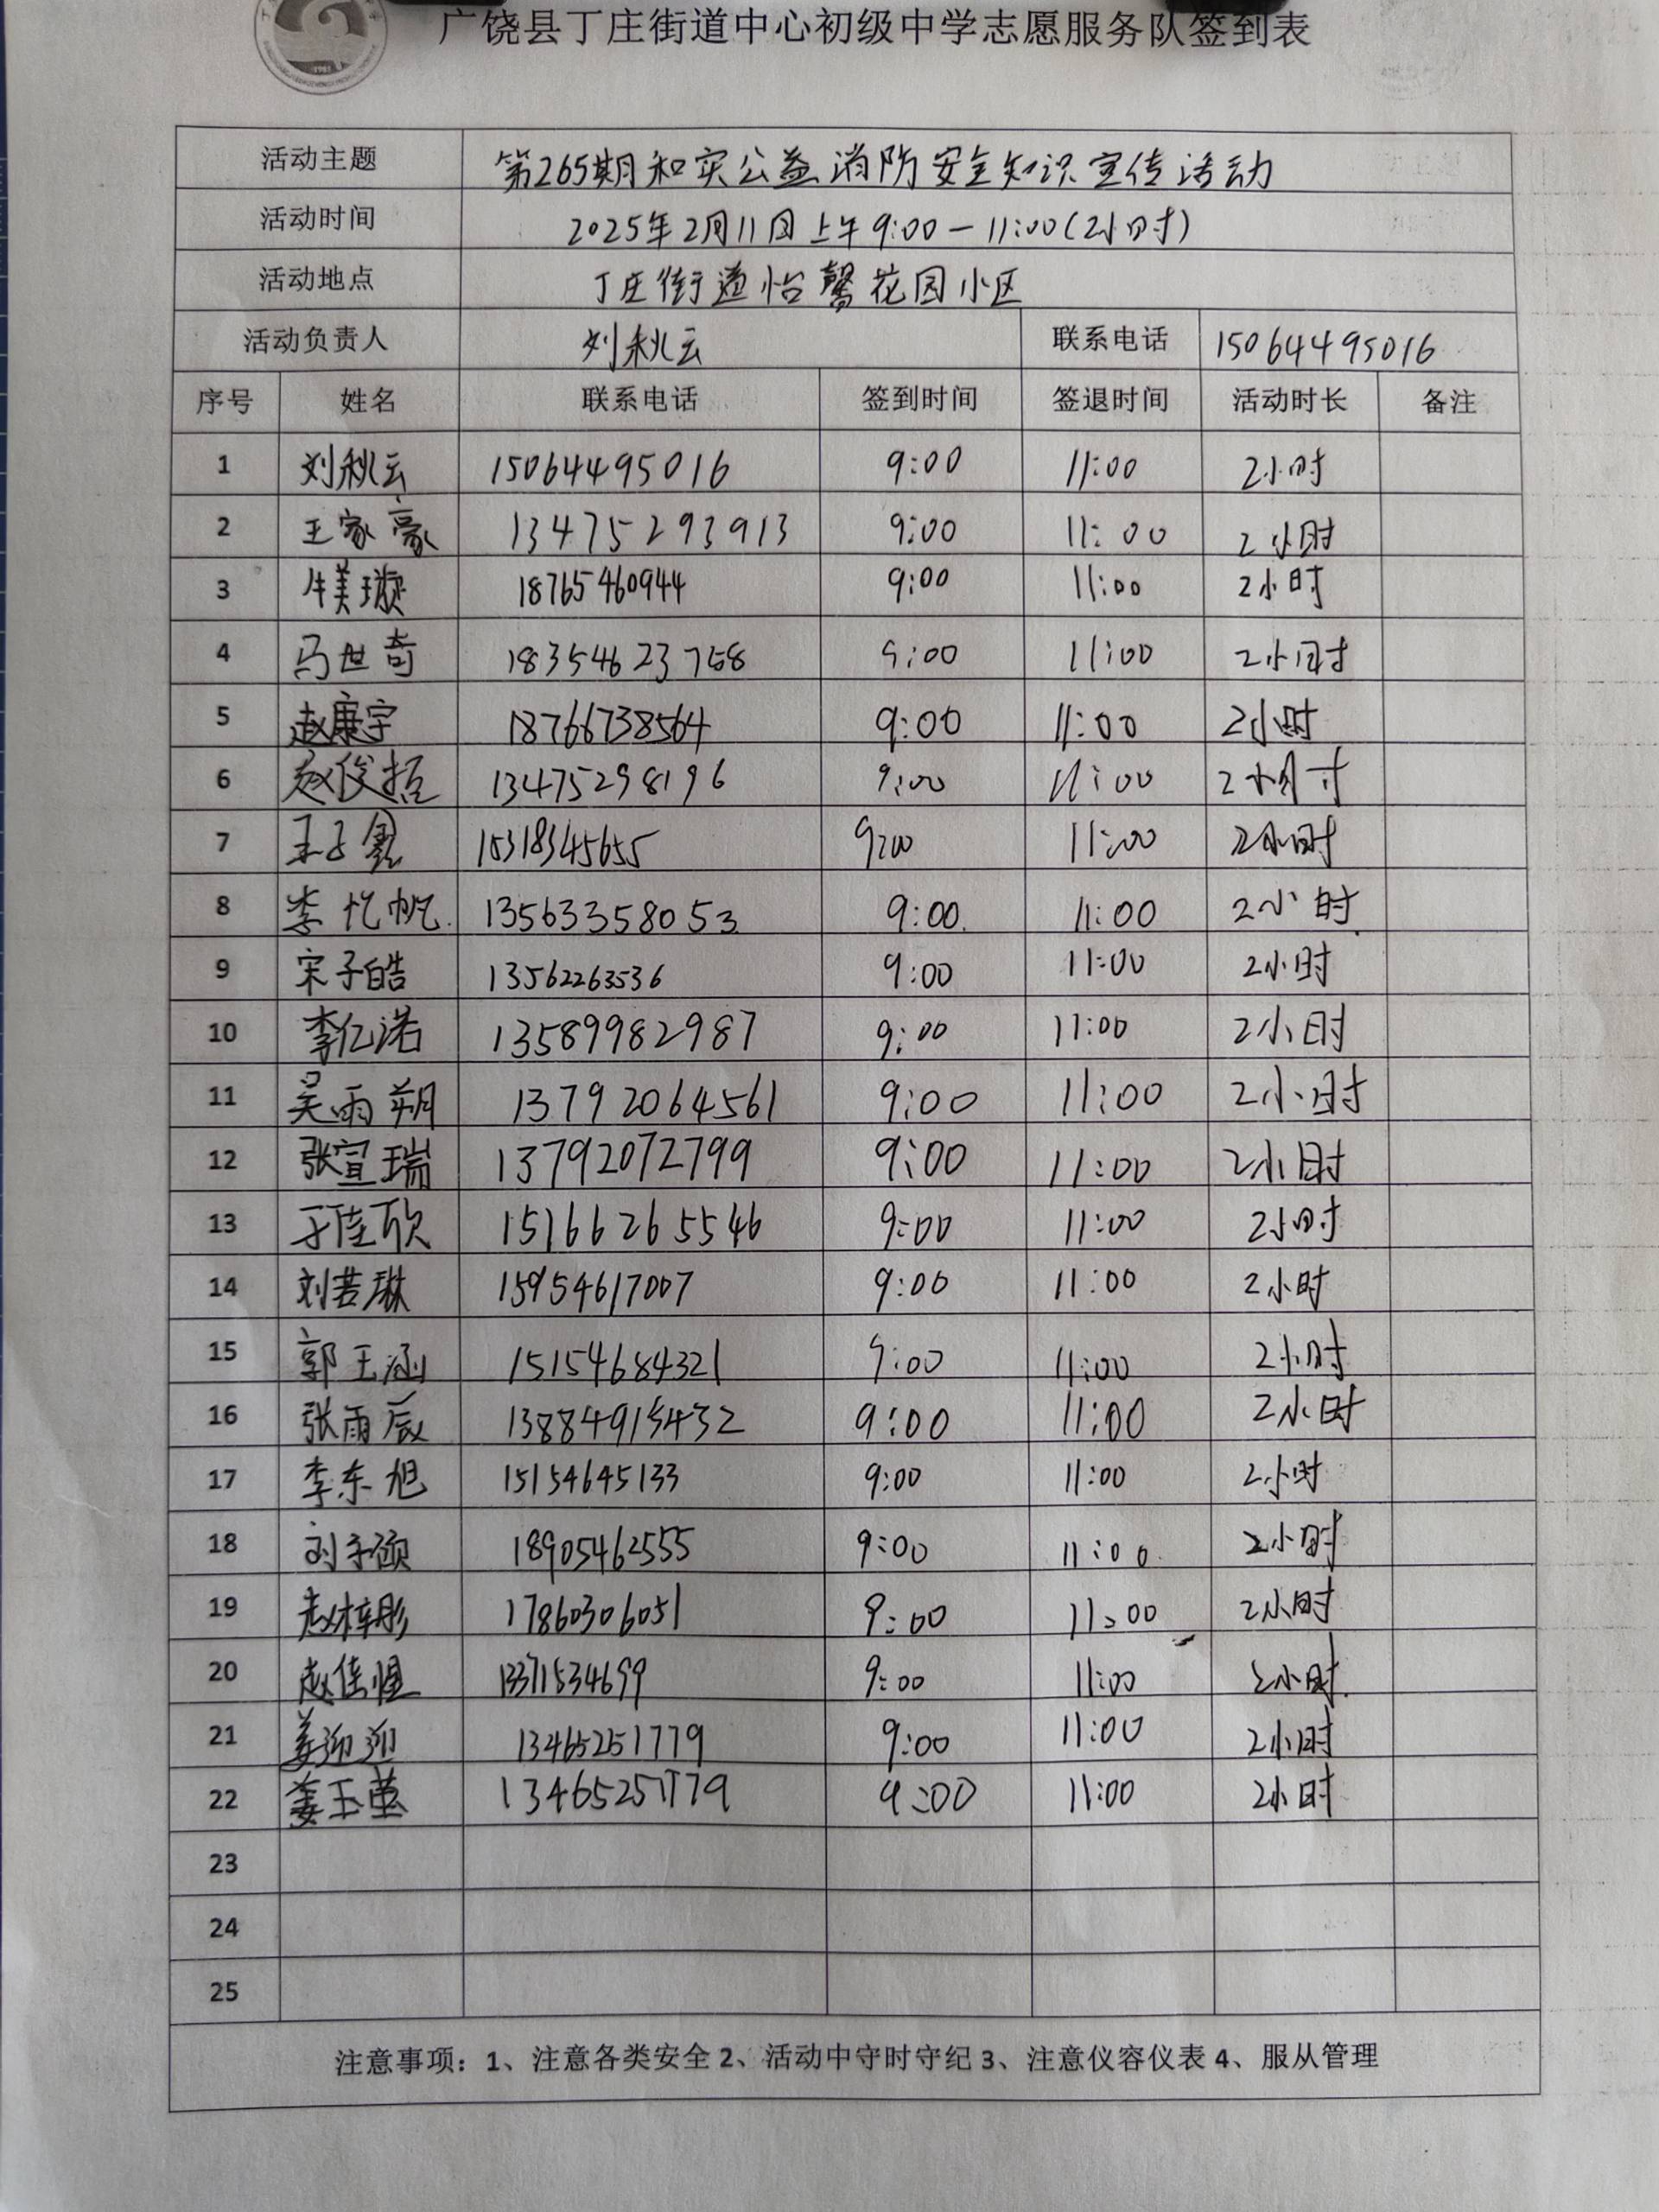 广饶县丁庄街道中心初级中学志愿服务队签到表
活动主题 第265期和实公益消防安全知识宣传活动
活动时间 2025年2月11日上午9:00-11:00(2小时)
活动地点 丁庄街道怡馨花园小区
活动负责人 刘秋云 联系电话 15064495016
序号 姓名 联系电话 签到时间 签退时间 活动时长 备注
1 刘秋云 15064495016 9:00 11:00 2小时
2 王家豪 13475293913 9:00 11:00 2小时
3 牛美璇 18765460944 9:00 11:00 2小时
4 马世奇 18354623768 9:00 11:00 2小时
5 赵康宇 18766738564 9:00 11:00 2小时
6 赵俊哲 13475298196 9:00 11:00 2小时
7 王子鑫 15318345655 9:00 11:00 2小时
8 李忆帆 13563358053 9:00 11:00 2小时
9 宋子皓 13562263536 9:00 11:00 2小时
10 李亿诺 13589982987 9:00 11:00 2小时
11 吴雨朔 13792064561 9:00 11:00 2小时
12 张宣瑞 13792072799 9:00 11:00 2小时
13 于佳欣 15166265546 9:00 11:00 2小时
14 刘若琳 15954617007 9:00 11:00 2小时
15 郭玉涵 15154684321 9:00 11:00 2小时
16 张雨辰 13884915432 9:00 11:00 2小时
17 李东旭 15154645133 9:00 11:00 2小时
18 刘子硕 18905462555 9:00 11:00 2小时
19 赵梓彤 17860306051 9:00 11:00 2小时
20 赵佳惺 13371534699 9:00 11:00 2小时
21 姜迎迎 13465251779 9:00 11:00 2小时
22 姜玉莹 13465251779 9:00 11:00 2小时
23
24
25
注意事项：1、注意各类安全 2、活动中守时守纪 3、注意仪容仪表 4、服从管理